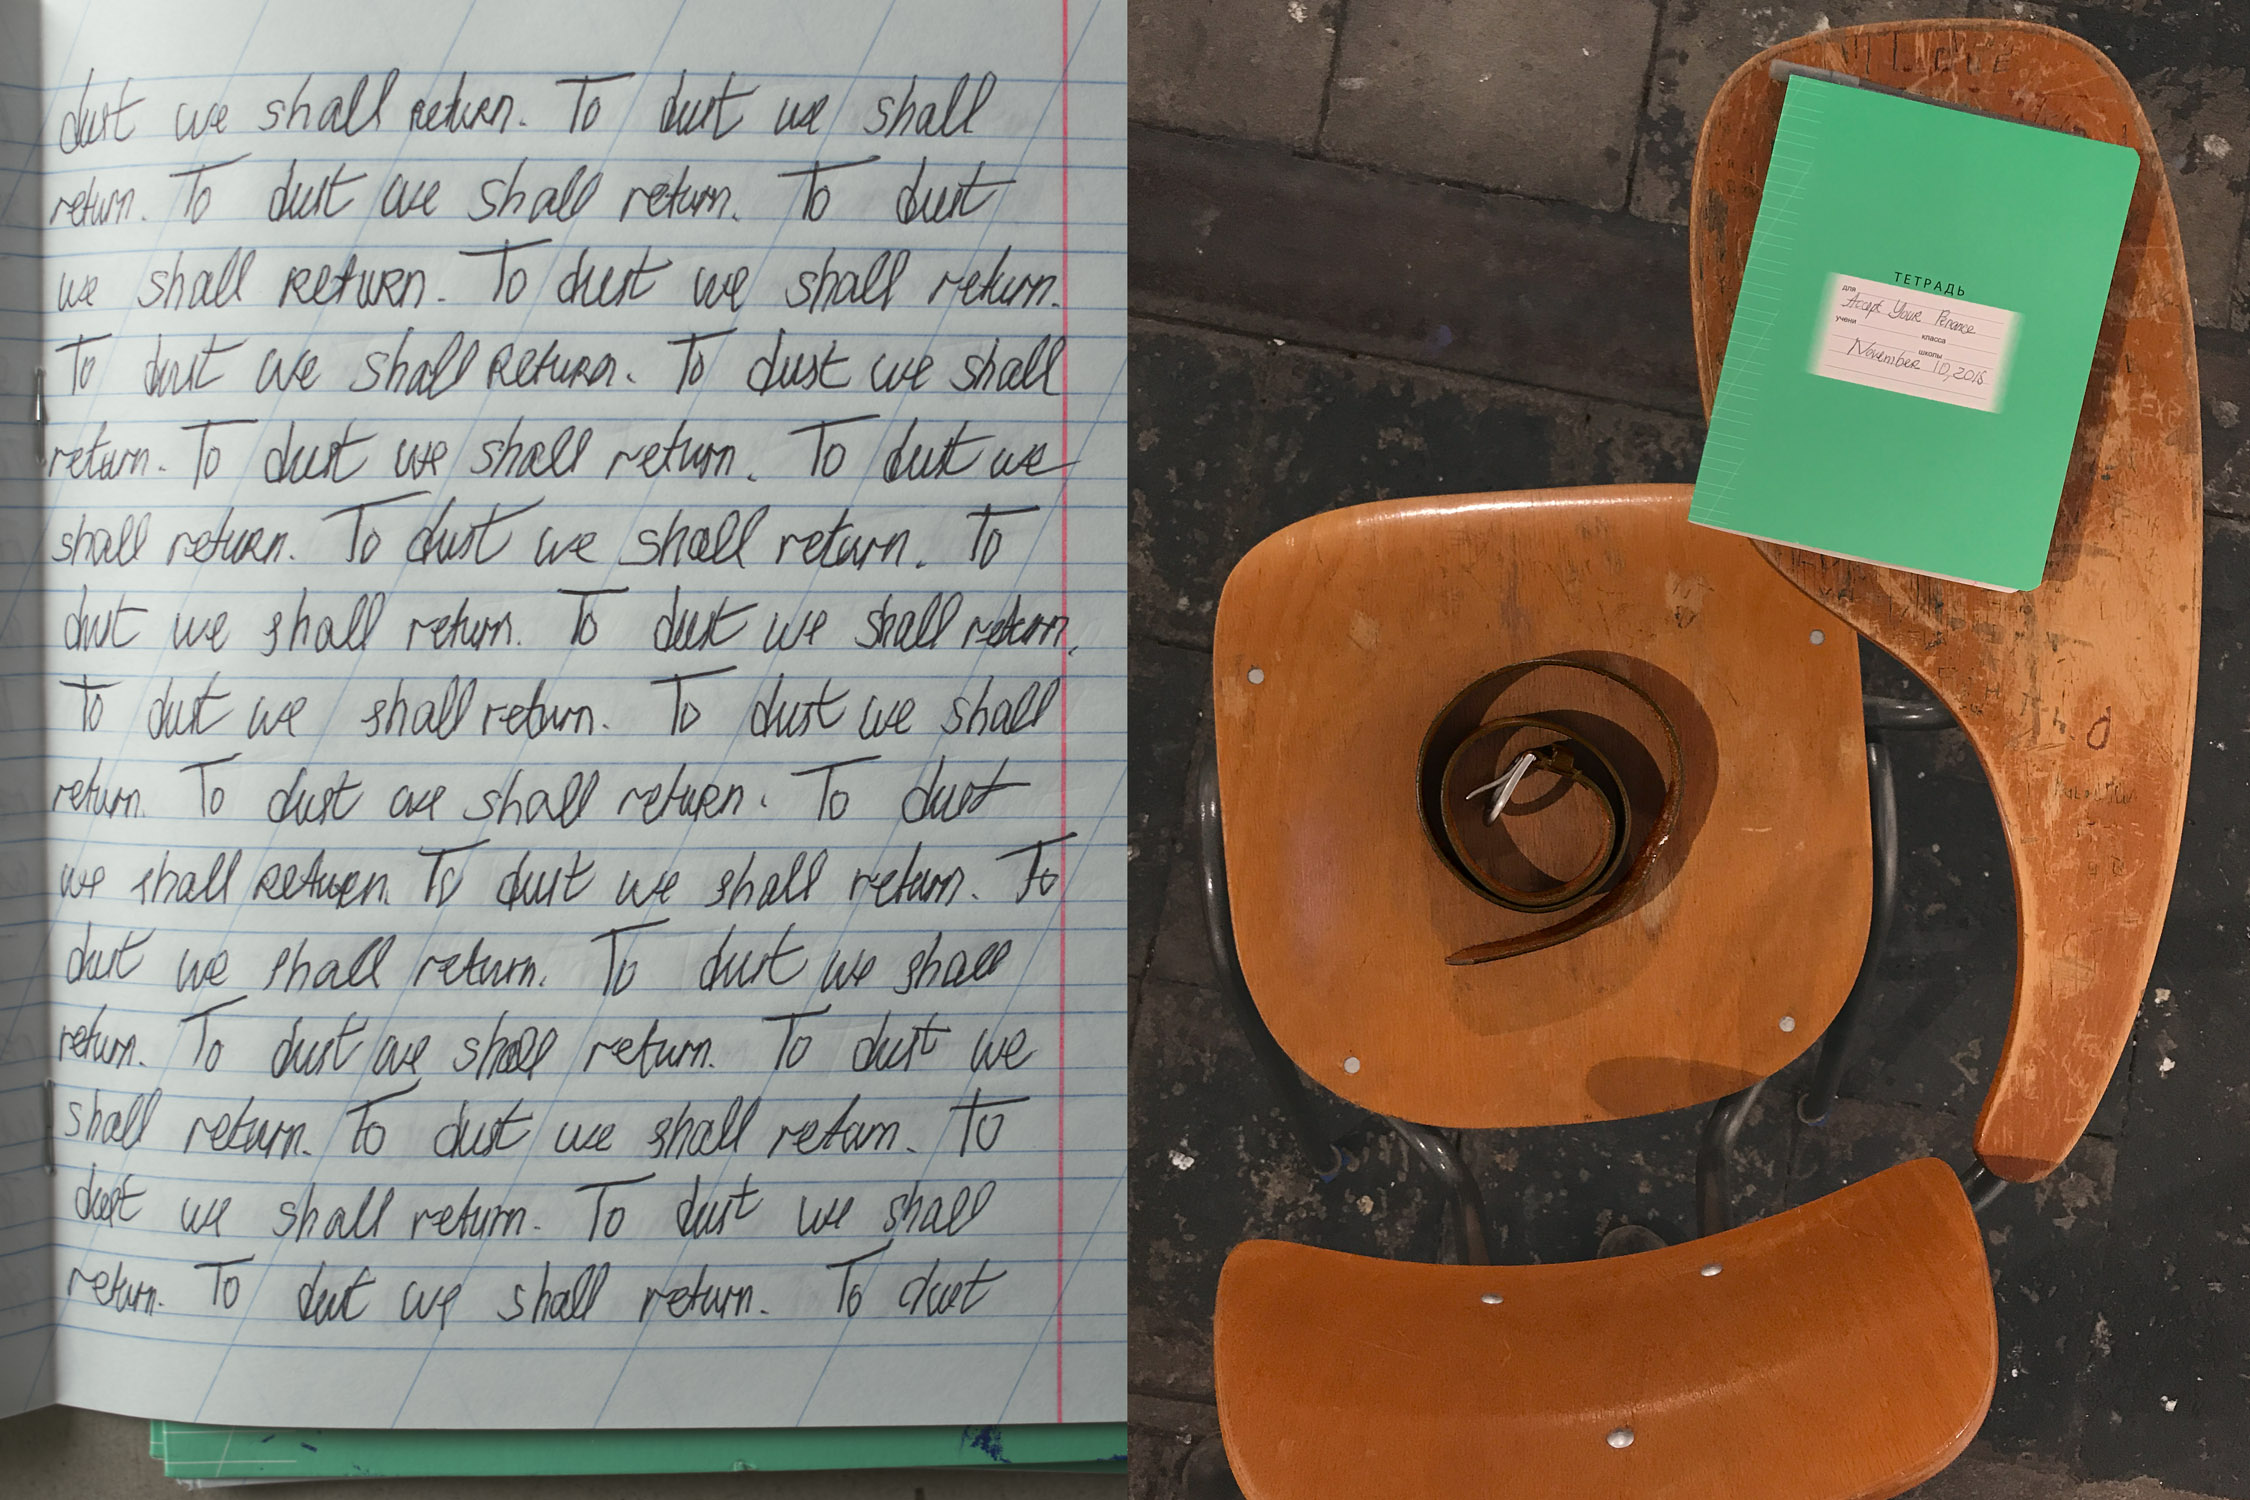 dust we shall return. To dust we shall
return. To dust we shall return. To dust
we shall return. To dust we shall return.
To dust we shall return. To dust we shall
return. To dust we shall return. To dust we
shall return. To dust we shall return. To
dust we shall return. To dust we shall return.
To dust we shall return. To dust we shall
return. To dust we shall return. To dust
we shall return. To dust we shall return. To
dust we shall return. To dust we shall
return. To dust we shall return. To dust we
shall return. To dust we shall return. To
dust we shall return. To dust we shall
return. To dust we shall return. To dust
ТЕТРАДЬ
для
Accept Your Penance
учени
класса
школы
November 10, 2015